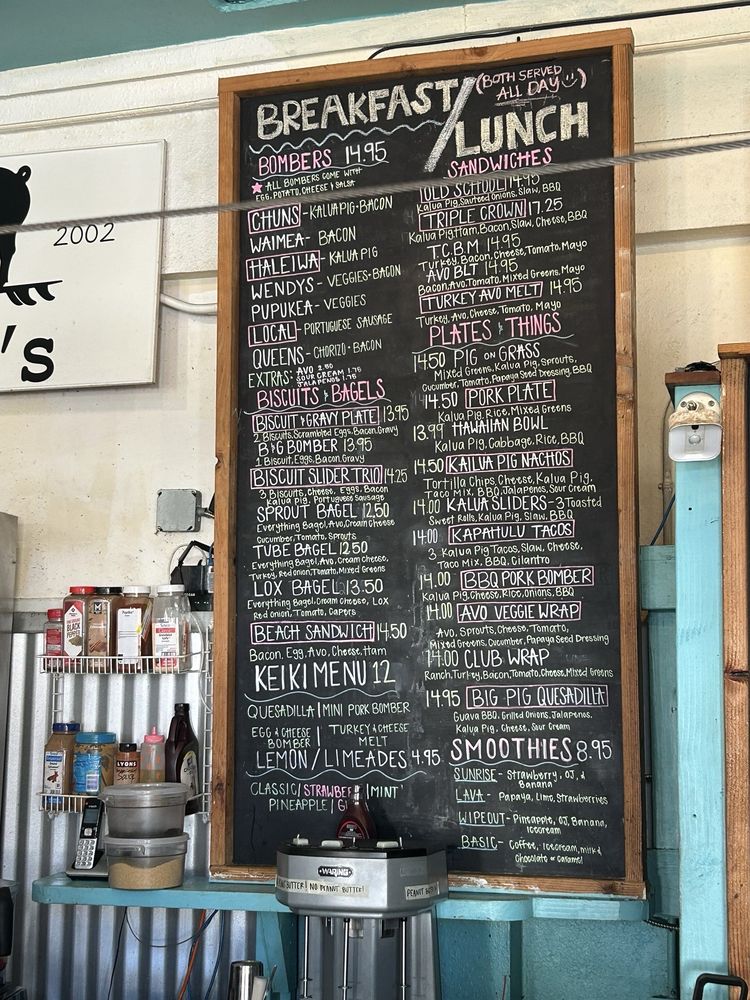 2002
'S
BREAKFAST/LUNCH
(BOTH SERVED
ALL DAY)
BOMBERS 14.95
★ ALL BOMBERS COME WITH
EGG, POTATO, CHEESE & SALSA
CHUNS - KALUA PIG + BACON
WAIMEA - BACON
HALEIWA - KALUA PIG
WENDYS - VEGGIES + BACON
PUPUKEA - VEGGIES
LOCAL - PORTUGUESE SAUSAGE
QUEENS - CHORIZO + BACON
EXTRAS: AVO 2.50
SOUR CREAM 1.75
JALAPENOS 1.75
BISCUITS & BAGELS
BISCUIT & GRAVY PLATE 13.95
2 Biscuits, Scrambled Eggs, Bacon, Gravy
B & G BOMBER 13.95
1 Biscuit, Eggs, Bacon, Gravy
BISCUIT SLIDER TRIO 14.25
3 Biscuits, Cheese, Eggs, Bacon
Kalua Pig, Portuguese Sausage
SPROUT BAGEL 12.50
Everything Bagel, Avo, Cream Cheese
Cucumber, Tomato, Sprouts
TUBE BAGEL 12.50
Everything Bagel, Avo, Cream Cheese,
Turkey, Red onion, Tomato, Mixed Greens
LOX BAGEL 13.50
Everything Bagel, Cream Cheese, Lox
Red onion, Tomato, Capers
BEACH SANDWICH 14.50
Bacon, Egg, Avo, Cheese, Ham
KEIKI MENU 12
QUESADILLA | MINI PORK BOMBER
EGG & CHEESE BOMBER | TURKEY & CHEESE MELT
LEMON/LIMEADES 4.95
CLASSIC/STRAWBE /MINT
PINEAPPLE/
SANDWICHES
OLD SCHOOL 14.95
Kalua Pig, Sauteed Onions, Slaw, BBQ
TRIPLE CROWN 17.25
Kalua Pig, Ham, Bacon, Slaw, Cheese, BBQ
J.C.B.M 14.95
Turkey, Bacon, Cheese, Tomato, Mayo
AVO BLT 14.95
Bacon, Avo, Tomato, Mixed Greens, Mayo
TURKEY AVO MELT 14.95
Turkey, Avo, Cheese, Tomato, Mayo
PLATES & THINGS
14.50 PIG ON GRASS
Mixed Greens, Kalua Pig, Sprouts,
Cucumber, Tomato, Papaya Seed Dressing, BBQ
14.50 PORK PLATE
Kalua Pig, Rice, Mixed Greens
13.99 HAWAIIAN BOWL
Kalua Pig, Cabbage, Rice, BBQ
14.50 KALUA PIG NACHOS
Tortilla Chips, Cheese, Kalua Pig,
Taco Mix, BBQ, Jalapenos, Sour Cream
14.00 KALUA SLIDERS - 3 Toasted
Sweet Rolls, Kalua Pig, Slaw, BBQ
14.00 KAPAHULU TACOS
3 Kalua Pig Tacos, Slaw, Cheese,
Taco Mix, BBQ, Cilantro
14.00 BBQ PORK BOMBER
Kalua Pig, Cheese, Rice, Onions, BBQ
14.00 AVO VEGGIE WRAP
Avo, Sprouts, Cheese, Tomato,
Mixed Greens, Cucumber, Papaya Seed Dressing
14.00 CLUB WRAP
Ranch, Turkey, Bacon, Tomato, Cheese, Mixed Greens
14.95 BIG PIG QUESADILLA
Guava BBQ, Grilled Onions, Jalapenos,
Kalua Pig, Cheese, Sour Cream
SMOOTHIES 8.95
SUNRISE - Strawberry, OJ, &
Banana
LAVA - Papaya, Lime, Strawberries
WIPEOUT - Pineapple, OJ, Banana,
Icecream
BASIC - Coffee, Icecream, milk &
Chocolate or Caramel
BLACK PEPPER
LYONS
WARING
NUT BUTTER! NO PEANUT BUTTER!
PEANUT BU